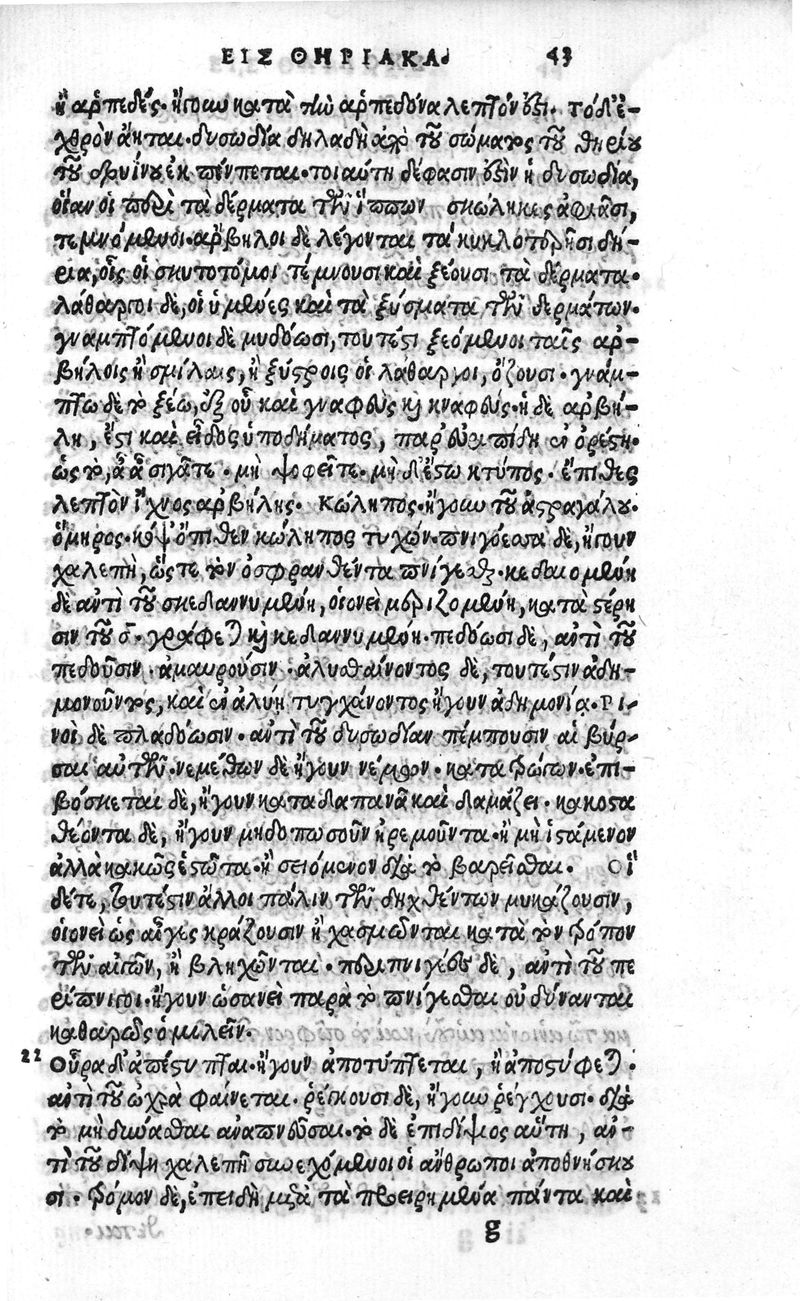 ΕΙΣ ΘΗΡΙΑΚΑ. 43
ἢ ἁρπεδές. ἤγουν κατὰ τὴν ἁρπεδόνα λεπτόν ἐστι. τὸ δ᾽ ἐ-
χθρὸν ἄηται. δυσωδία δηλαδὴ ἀπὸ τοῦ σώματος τοῦ θηρίου
τοῦ δρυΐνου ἐκπέμπεται. τοιαύτη δέ φασιν ἐστὶν ἡ δυσωδία,
οἵαν οἱ περὶ τὰ δέρματα τῶν ἵππων σκώληκες ἀφιᾶσι,
τεμνόμενοι. ἄρβηλοι δὲ λέγονται τὰ κυκλοτερῆ σιδή-
ρια, οἷς οἱ σκυτοτόμοι τέμνουσι καὶ ξέουσι τὰ δέρματα.
λάθαργοι δὲ, οἱ ὑμένες καὶ τὰ ξύσματα τῶν δερμάτων.
γναμπτόμενοι δὲ μυδόωσι, τουτέστι ξεόμενοι ταῖς ἀρ-
βήλοις ἢ σμίλαις, ἢ ξύστροις οἱ λάθαργοι, ὄζουσι. γνάμ-
πτω δὲ τὸ ξέω, ἐξ οὗ καὶ γναφεὺς καὶ κναφεύς. ἡ δὲ ἀρβή-
λη, ἔστι καὶ εἶδος ὑποδήματος, παρ᾽ εὐριπίδῃ ἐν ὀρέστῃ.
ὡς τὸ, ἆ ἆ σιγᾶτε. μὴ ψοφεῖτε. μὴ δ᾽ ἔστω κτύπος. ἐπίθες
λεπτὸν ἴχνος ἀρβήλης. Κώληπος. ἤγουν τοῦ ἀστραγάλου.
ὅμηρος. κόψ᾽ ὄπιθεν κώληπος τυχών. πνιγόεσσα δὲ, ἤγουν
χαλεπὴ, ὥστε τὸν ὀσφρανθέντα πνίγεσθαι. κεδαιομένη
δὲ ἀντὶ τοῦ σκεδαννυμένη, οἱονεὶ μεριζομένη, κατὰ στέρη
σιν τοῦ σ. γράφεται καὶ κεδαννυμένη. πεδόωσι δὲ, ἀντὶ τοῦ
πεδοῦσιν. ἀμαυροῦσιν. ἀλυσθαίνοντος δὲ, τουτέστιν ἀδη-
μονοῦντος, καὶ ἐν ἀλύῃ τυγχάνοντος ἤγουν ἀδημονίᾳ. ῥι-
νοὶ δὲ πλαδόωσιν. ἀντὶ τοῦ δυσωδίαν πέμπουσιν αἱ βύρ-
σαι αὐτῶν. νεμέθων δὲ ἤγουν νέμων. κατατρώγων. ἐπι-
βόσκεται δὲ, ἤγουν καταδαπανᾷ καὶ δαμάζει. κακοστα
θέοντα δὲ, ἤγουν μηδοπωσοῦν ἠρεμοῦντα. ἢ μὴ ἱστάμενον
ἀλλὰ κακῶς ἑστῶτα. ἢ σειόμενον διὰ τὸ βαρεῖσθαι. Οἵ
δέ τε, τουτέστιν ἄλλοι πάλιν τῶν δηχθέντων μυκάζουσιν,
οἱονεὶ ὡς αἶγες κράζουσιν ἢ χασμῶνται κατὰ τὸν τρόπον
τῶν αἰγῶν, ἢ βληχῶνται. περιπνιγέες δὲ, ἀντὶ τοῦ πε
ρίπνιγοι. ἤγουν ὡσανεὶ παρὰ τὸ πνίγεσθαι οὐ δύνανται
καθαρῶς ὁμιλεῖν.
22 Οὖρα δ᾽ ἀπέστυπται. ἤγουν ἀποτύπτεται, ἢ ἀποστύφεται.
ἀντὶ τοῦ ὠχρὰ φαίνεται. ῥέγκουσι δὲ, ἤγουν ῥέγχουσι. διὰ
τὸ μὴ δύνασθαι ἀναπνεῦσαι. τὸ δὲ ἐπιδίψιος αὕτη, ἀν-
τὶ τοῦ δίψῃ χαλεπῇ συνεχόμενοι οἱ ἄνθρωποι ἀποθνήσκου
σι. τρόμον δὲ, ἐπειδὴ μετὰ τὰ προειρημένα πάντα καὶ
g